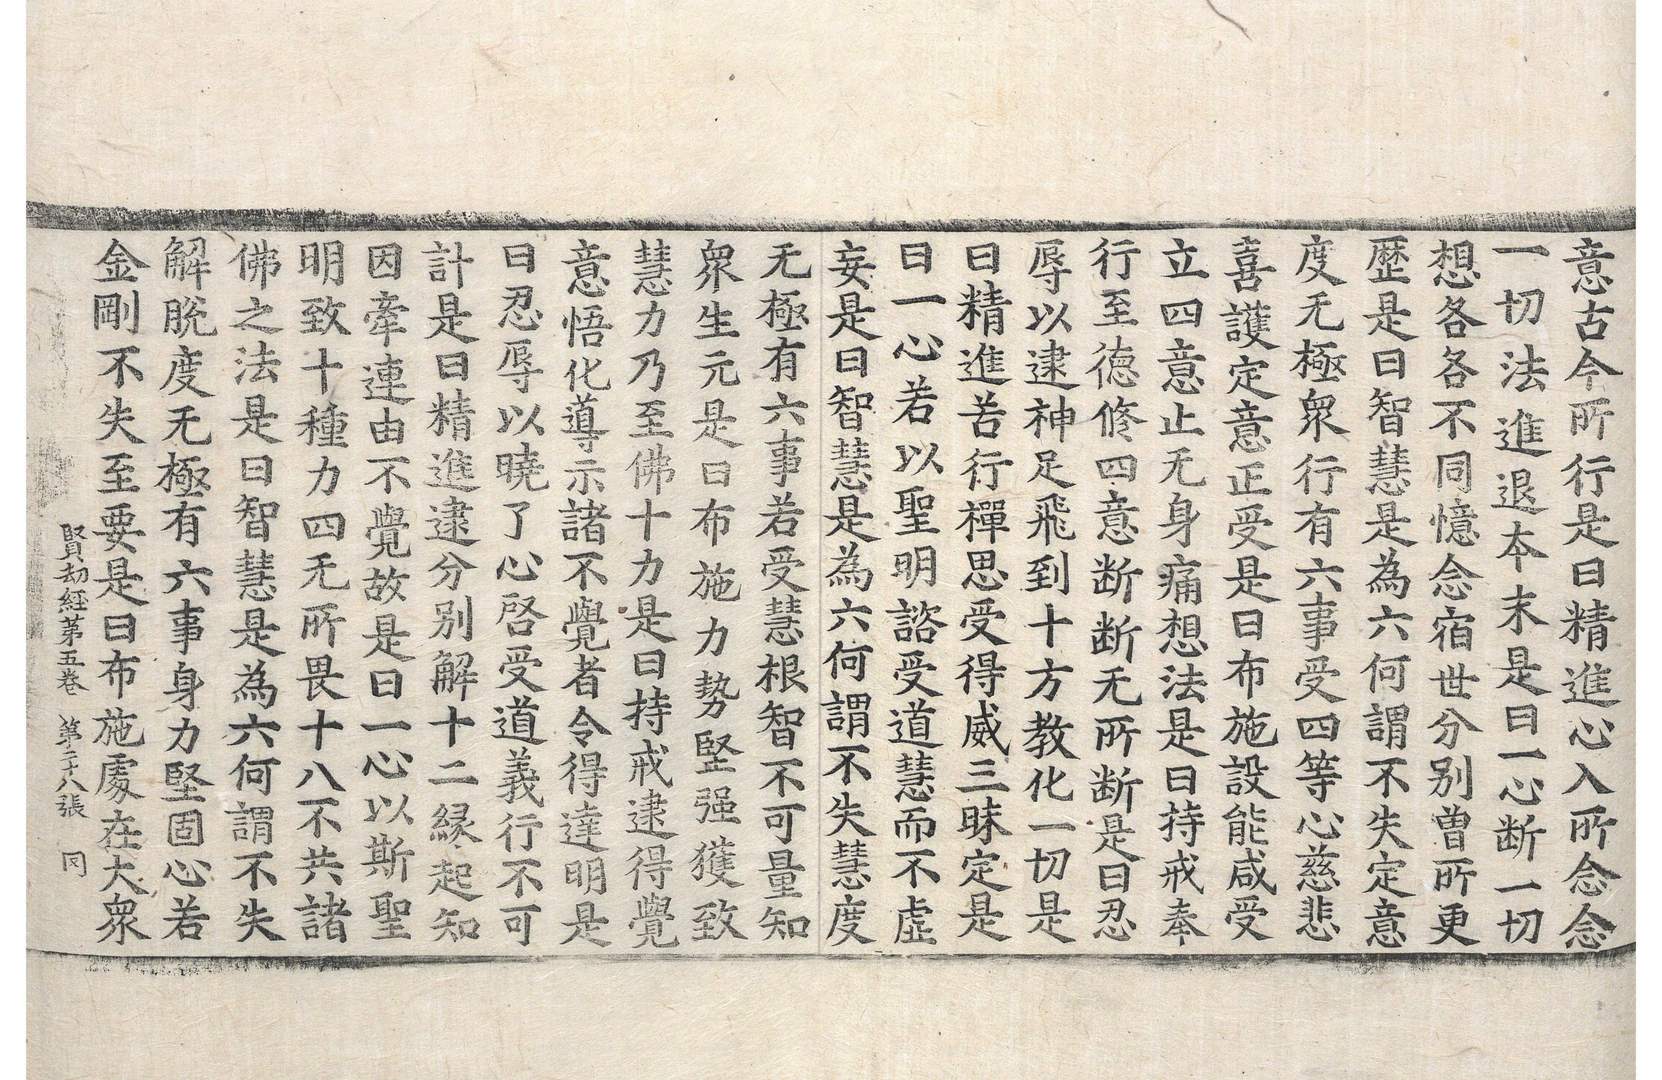 意古今所行是曰精進心入所念念
一切法進退本末是曰一心断一切
想各各不同憶念宿世分别曽所更
歷是曰智慧是為六何謂不失定意
度无極衆行有六事受四等心慈悲
喜護定意正受是曰布施設能咸受
立四意止无身痛想法是曰持戒奉
行至德修四意断断无所断是曰忍
辱以逮神足飛到十方教化一切是
曰精進苦行禪思受得威三昧定是
曰一心若以聖明諮受道慧而不虛
妄是曰智慧是為六何謂不失慧度
无極有六事若受慧根智不可量知
衆生元是曰布施力勢堅强獲致
慧力乃至佛十力是曰持戒逮得覺
意悟化導示諸不覺者令得達明是
曰忍辱以曉了心啓受道義行不可
計是曰精進逮分别解十二緣起知
因牽連由不覺故是曰一心以斯聖
明致十種力四无所畏十八不共諸
佛之法是曰智慧是為六何謂不失
解脫度无極有六事身力堅固心若
金剛不失至要是曰布施處在大衆
賢劫經第五卷 第二十八張 同